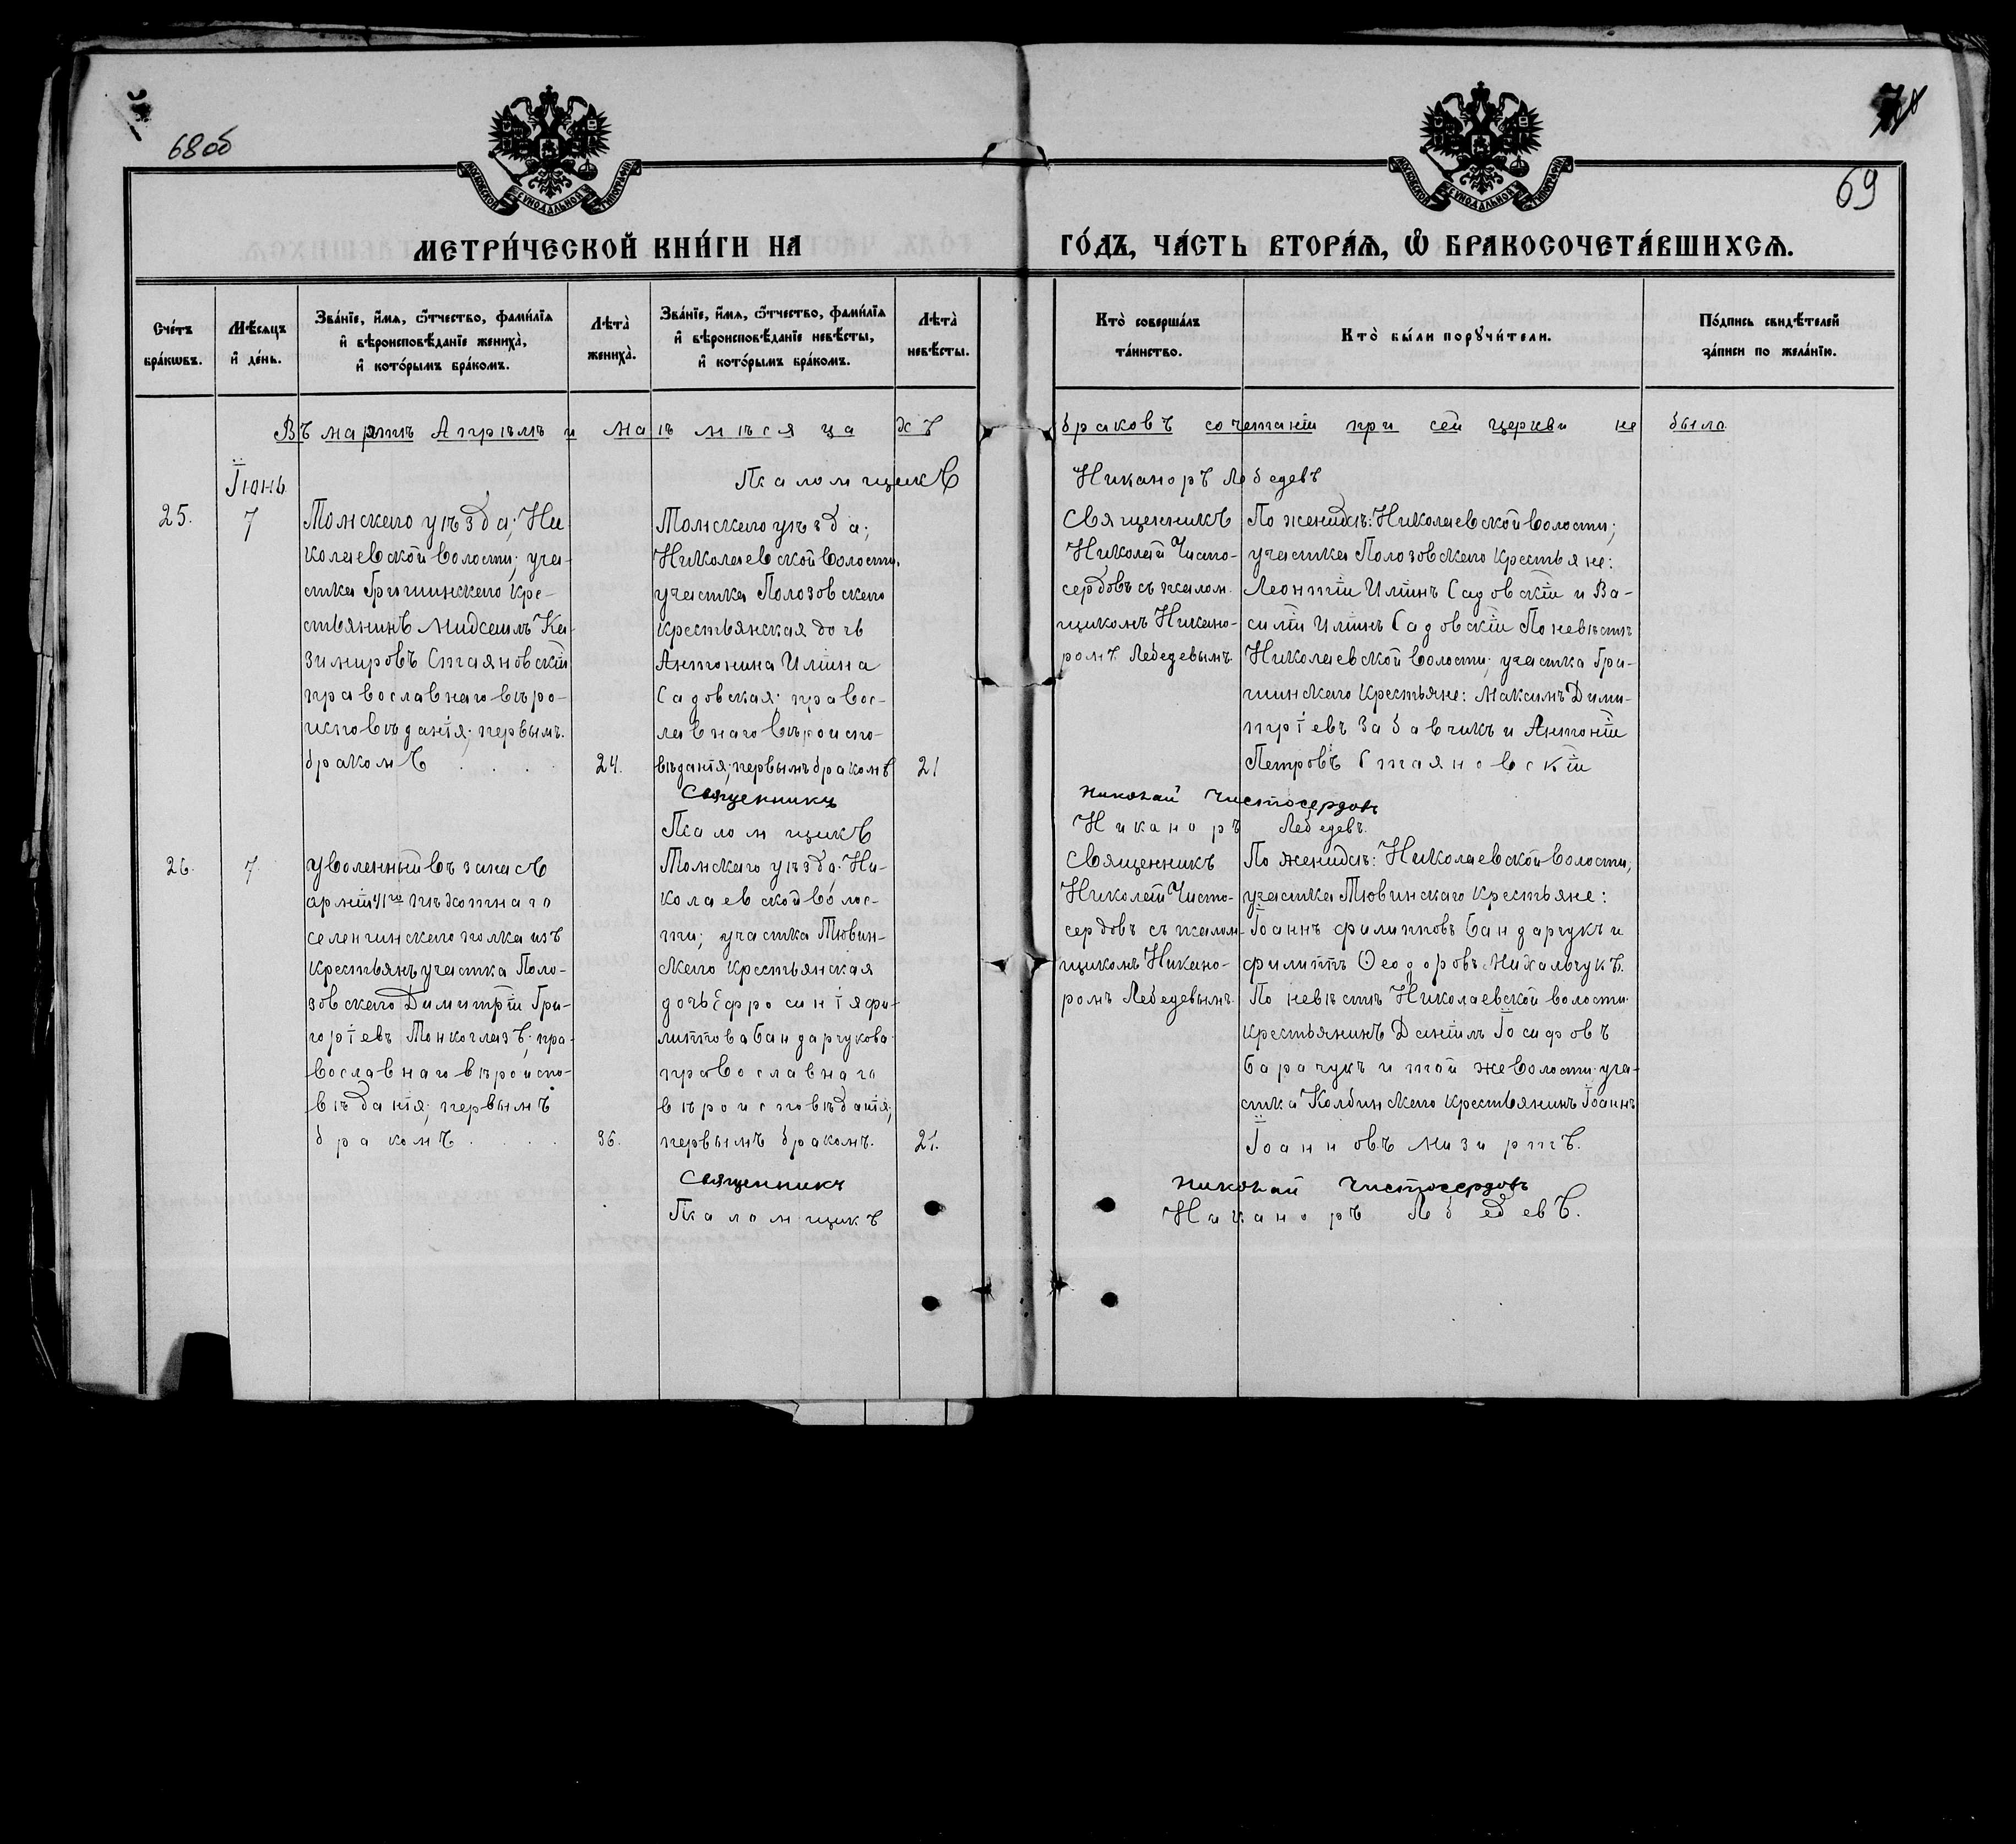 68об
69
МОСКОВСКОЙ СУНОДАЛЬНОЙ ТИПОГРАФІИ
МОСКОВСКОЙ СУНОДАЛЬНОЙ ТИПОГРАФІИ
МЕТРИ́ЧЕСКОЙ КНИ́ГИ НА ГО́ДЪ, ЧА́СТЬ ВТОРА́Я, Ѡ҆ БРАКОСОЧЕТА́ВШИХСЯ.
Сче́тъ
бра́кѡвъ.
Мѣ́сяцъ
и҆ де́нь.
Зва́нїе, и҆́мя, ѻ҆́тчество, фами́лїя
и҆ вѣроисповѣ́данїе жениха̀,
и҆ кото́рымъ бра́комъ.
Лѣта̀
жениха̀.
Зва́нїе, и҆́мя, ѻ҆́тчество, фами́лїя
и҆ вѣроисповѣ́данїе невѣ́сты,
и҆ кото́рымъ бра́комъ.
Лѣта̀
невѣ́сты.
Кто̀ соверша́лъ
та́инство.
Кто̀ бы́ли порꙋчи́тели.
По́дпись свидѣ́телей
за́писи по жела́нїю.
Въ мартѣ Апрѣлѣ и маѣ мѣсяцахъ браковъ сочетаніи при сей церкви не было
Псаломщикъ Никаноръ Лебедевъ
Іюнь
25.
7
Томскаго уѣзда; Ни
колаевской волости; уча-
стка Гришинскаго кре-
стьянинъ Михаилъ Ка-
зимировъ Стаяновскій
православнаго вѣро-
исповѣданія; первымъ
бракомъ . . . .
24.
Томскаго уѣзда;
Николаевской волости,
участка Полозовскаго
крестьянская дочь
Антонина Иліина
Садовская; правос-
лавнаго вѣроиспо-
вѣданія; первымъ бракомъ
21
Священникъ
Николай Чисто-
сердовъ съ псалом-
щикомъ Никано-
ромъ Лебедевымъ
По женихѣ: Николаевской волости;
участка Полозовскаго крестьяне:
Леонтій Иліинъ Садовскій и Ва-
силій Иліинъ Садовскій По невѣстѣ
Николаевской волости; участка Гри-
шинскаго крестьяне: Максимъ Дими-
тріевъ Забавчикъ и Антоній
Петровъ Стаяновскій
Священникъ Николай Чистосердовъ
Псаломщикъ Никаноръ Лебедевъ.
26.
7
Уволенный въ запасъ
арміи 41го пѣхотнаго
селенгинскаго полка изъ
крестьянъ участка Поло-
зовскаго Димитрій Гри-
горіевъ Тонкоглазъ; пра-
вославнаго вѣроиспо-
вѣданія; первымъ
бракомъ . . . .
36.
Томскаго уѣзда: Ни-
колаевской волос-
ти; участка Тювин-
скаго крестьянская
дочь Ефросинія фи-
липпова Бандарчукова
православнаго
вѣроисповѣданія;
первымъ бракомъ.
21.
Священникъ
Николай Чисто-
сердовъ съ псалом-
щикомъ Никано-
ромъ Лебедевымъ
По женихѣ: Николаевской волости;
участка Тювинскаго крестьяне:
Іоаннъ филипповъ Бандарчукъ и
филиппъ Ѳеодоровъ Михальчукъ.
По невѣстѣ Николаевской волости
крестьянинъ Даніилъ Іосифовъ
Барачукъ и той же волости уча-
стка Колбинскаго крестьянинъ Іоаннъ
Іоанновъ Мизиртъ.
Священникъ Николай Чистосердовъ
Псаломщикъ Никаноръ Лебедевъ.